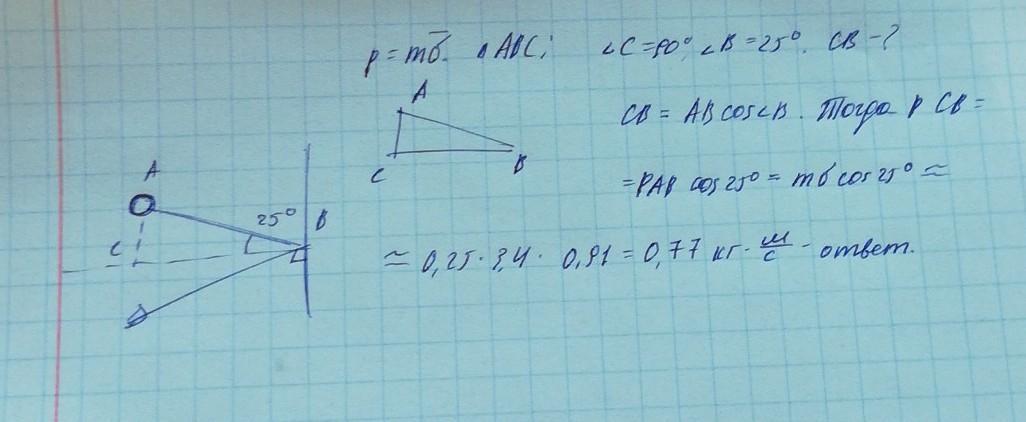 p = mv̄. △ABC; ∠C=90°, ∠B=25°. CB - ?
A
C
B
CB = AB cos∠B. Тогда p CB =
= PAB cos 25° = mv cos 25° ≈
≈ 0,25 · 3,4 · 0,91 = 0,77 кг · м/с - ответ.
A
25°
B
C